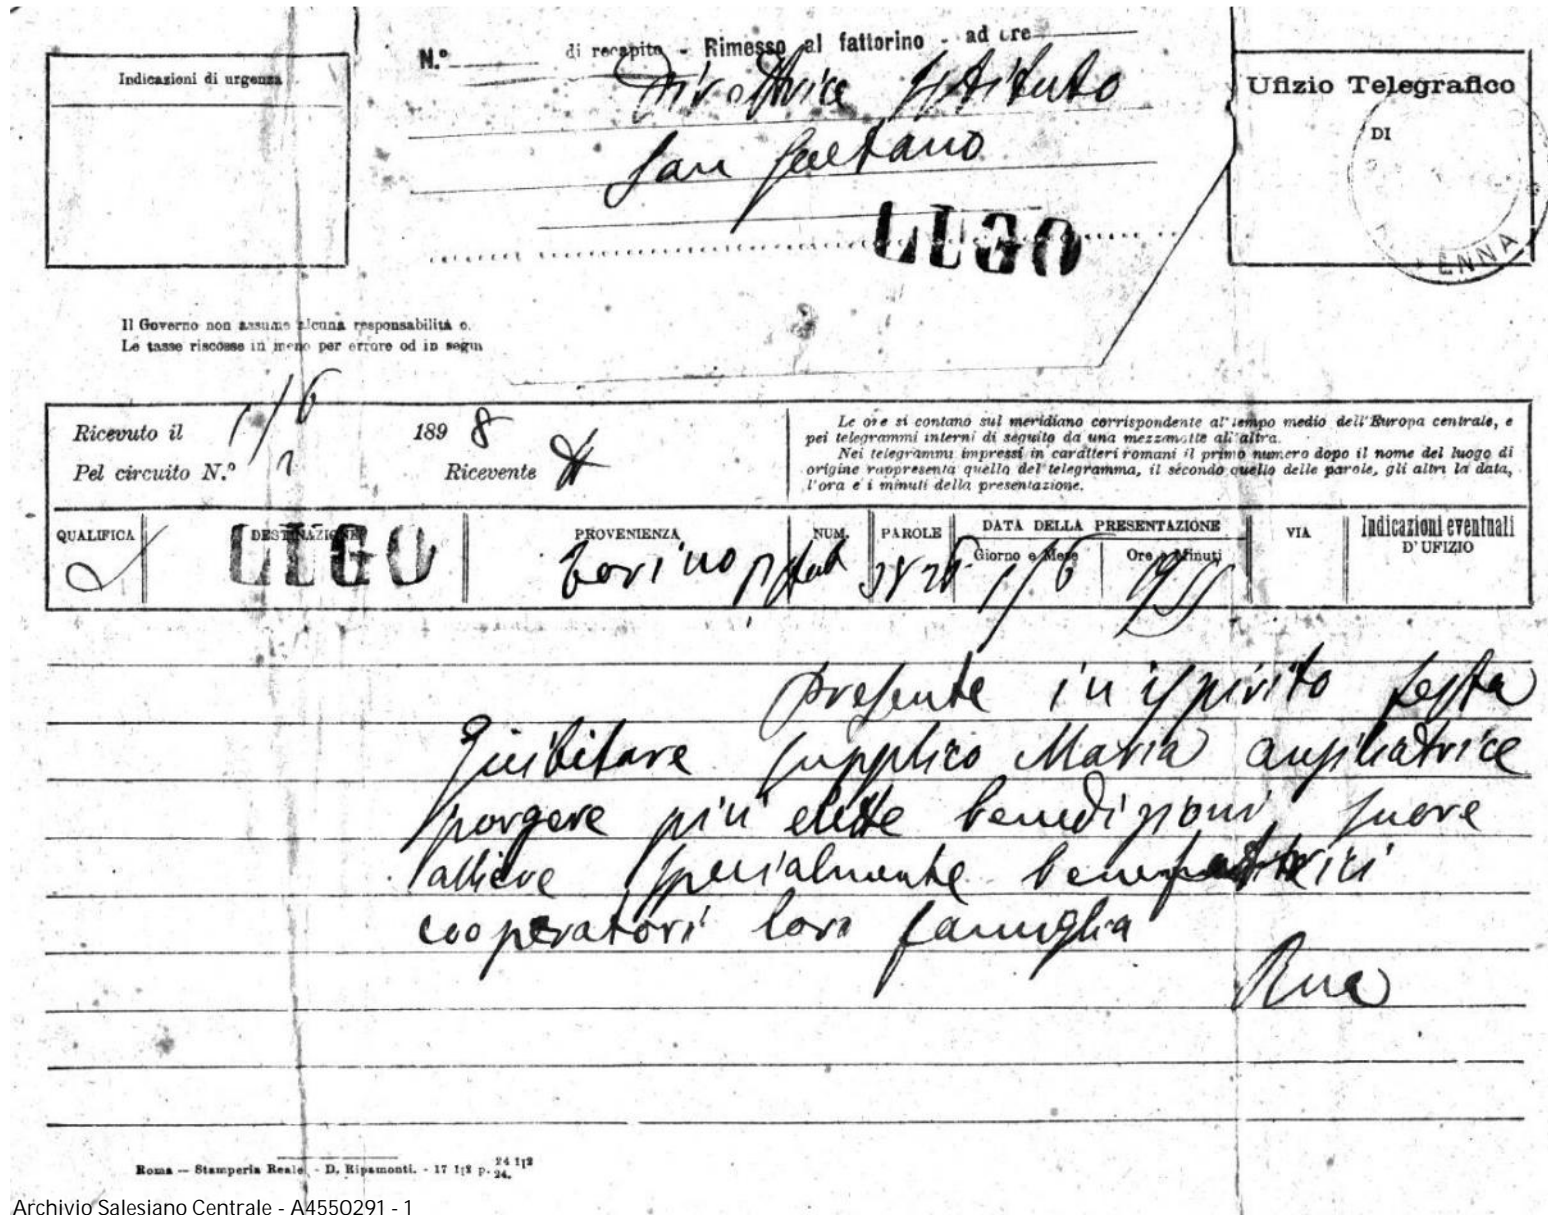 N.º di recapito - Rimesso al fattorino - ad ore
Indicazioni di urgenza
Direttrice Istituto
San Gaetano
LUGO
Ufizio Telegrafico
DI
ENNA
Il Governo non assume alcuna responsabilità c.
Le tasse riscosse in meno per errore od in segui
Ricevuto il 1/6 1898
Pel circuito N.º 1 Ricevente
Le ore si contano sul meridiano corrispondente al tempo medio dell'Europa centrale, e
pei telegrammi interni di seguito da una mezzanotte all'altra.
Nei telegrammi impressi in caratteri romani il primo numero dopo il nome del luogo di
origine rappresenta quello del telegramma, il secondo quello delle parole, gli altri la data,
l'ora e i minuti della presentazione.
QUALIFICA DESTINAZIONE PROVENIENZA NUM. PAROLE DATA DELLA PRESENTAZIONE VIA Indicazioni eventuali
D'UFIZIO
Giorno e Mese Ore e Minuti
LUGO Torino 1/6
presente in ispirito festa
Giubilare supplico Maria ausiliatrice
porgere più elette benedizioni suore
allieve specialmente benefattrici
cooperatori loro famiglia
Rua
Roma — Stamperia Reale - D. Ripamonti. - 17 1|2 p. 24 1|2 24.
Archivio Salesiano Centrale - A4550291 - 1